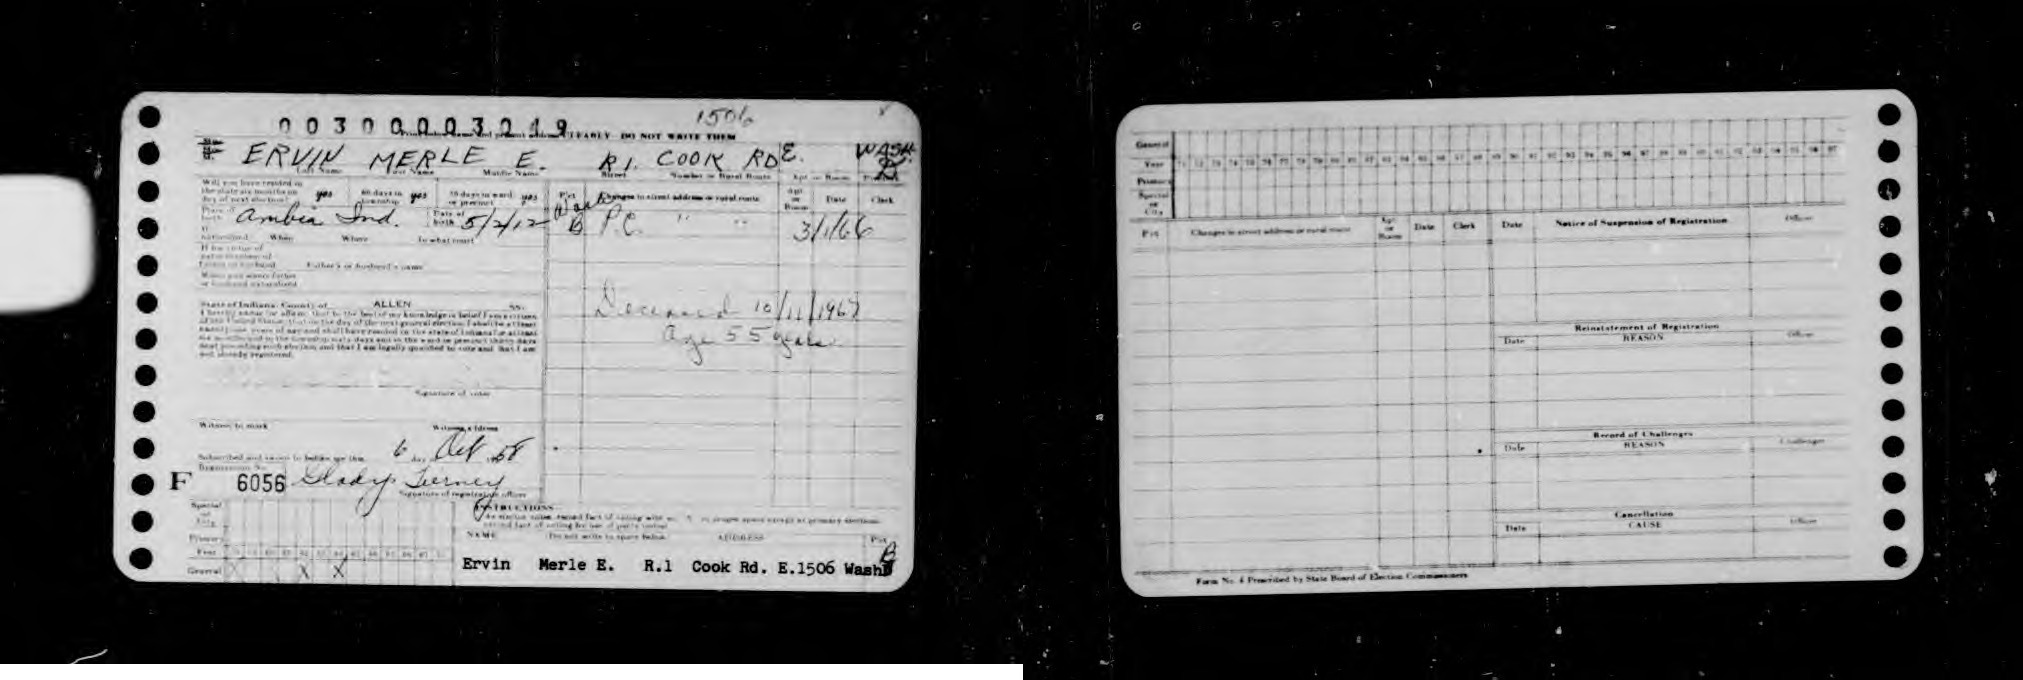 1506
00300003219
CLEARLY DO NOT WRITE THEM
ERVIN MERLE E. R1. COOK RD E. WASH. B
Last Name First Name Middle Name Street Number or Rural Route Apt. or Room Precinct
Will you have resided in the state six months on day of next election? yes 60 days in township yes 30 days in ward or precinct yes
Pct Changes to street address or rural route Apt. or Room Date Clerk
Place of birth Ambia Ind. Date of birth 5/2/12 Wash B P.C. " " 3/1/66
If naturalized When Where In what court
If by virtue of naturalization of father or husband Father's or husband's name
When was father or husband naturalized
State of Indiana, County of ALLEN SS:
I hereby swear (or affirm) that to the best of my knowledge & belief I am a citizen
of the United States; that on the day of the next general election I shall be at least
twenty-one years of age and shall have resided in the state of Indiana for at least
six months and in the township sixty days and in the ward or precinct thirty days
next preceding such election and that I am legally qualified to vote and that I am
not already registered.
Deceased 10/11/1967
age 55 years
Signature of voter
Witness to mark Witness address
Subscribed and sworn to before me this 6 day Oct 1958
Registration No.
F 6056 Gladys Tierney
Signature of registration officer
Special or City
Primary
Year
General X X
INSTRUCTIONS
NAME Do not write in space below ADDRESS Pct
Ervin Merle E. R.1 Cook Rd. E.1506 Wash B
General
Year
Primary
Special or City
Pct Changes to street address or rural route Apt. or Room Date Clerk Date Notice of Suspension of Registration Officer
Reinstatement of Registration
Date REASON Officer
Record of Challenges
Date REASON Challenger
Cancellation
Date CAUSE Officer
Form No. 4 Prescribed by State Board of Election Commissioners